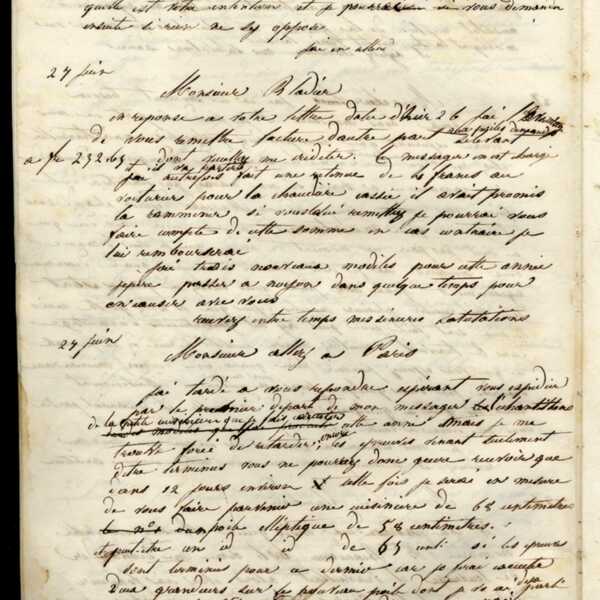 quelle est votre intention et je pourrai si vous demander
ensuite si rien ne s'y oppose
j'ai en attend
27 juin
Monsieur Bladier
en reponse a votre lettre datée d'hier 26 j'ai
de vous remettre facture d'autre part
a fr 232.65 dont veuillez me crediter. messager m'ont chargé
j'ai autrefois fait une retenue de 4 francs au
voiturier pour la chaudière cassée il avait promis
la ramminer si vous lui remettez je pourrai vous
faire compte de cette somme en cas contraire je
lui rembourserai
j'ai trois nouveaux modèles pour cette année
j'espère passer a noyon dans quelque temps pour
en causer avec vous
recevez entre temps mes sinceres salutations
27 juin
Monsieur allez a Paris
j'ai tardé a vous repondre espérant vous expedier
par le premier depart de mon messager l'échantillon
de la cette année Mais je me
trouve forcé de retarder encore, les épreuves n'étant tuitement
être terminés vous ne pourrez donc guere recevoir que
dans 12 jours environ cette fois je serai en mesure
de vous faire parvenir une cuisinière de 68 centimètres
poile elliptique de 58 centimètres.
et peut être un id id de 65 cent si les épreuves
sont terminés pour ce dernier car je ferai
Deux grandeurs sur le nouveau poile dont je